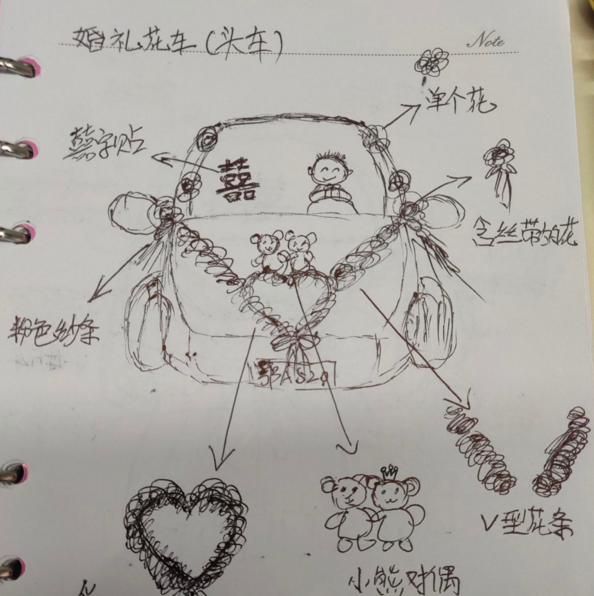 婚礼花车(头车)
Note
单个花
囍字贴
囍
含丝带的花
粉色纱条
V型花条
小熊对偶